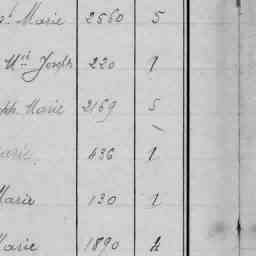 Marie 2560 5
Mie Joseph 220 1
Marie 2169 5
Marie 436 1
Marie 130 1
Marie 1890 4